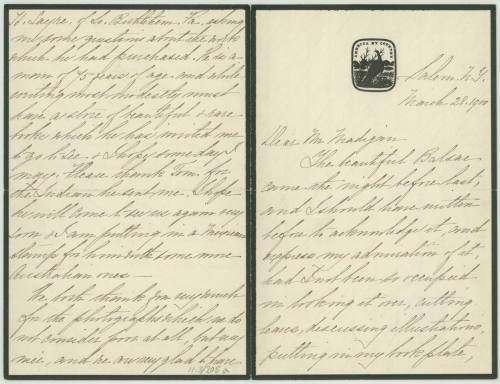 Salem N.Y.
March 28. 1900
Dear Mr. Madigan
The beautiful Balzac
came the night before last,
and I should have written
before to acknowledge it, and
express my admiration of it,
had I not been so occupied
in looking it over, cutting
leaves, discussing illustrations,
putting in my bookplate,
H. Sayre, of So. Bethlehem Pa., asking
me some question about the work
which he had purchased. He is a
man of 75 years of age and while
writing most modestly must
have a store of beautiful & rare
books which he has invited me
to go & see, & I hope some day I
may. Please thank Tom for
the Indian he sent me. I hope
he will come to see us again very
soon & I am putting in a
stamp for him with some more
Australian ones —
We both thank you very much
for the photographs which we do
not consider poor at all, but very
nice, and we are very glad to have
11-3/205 a